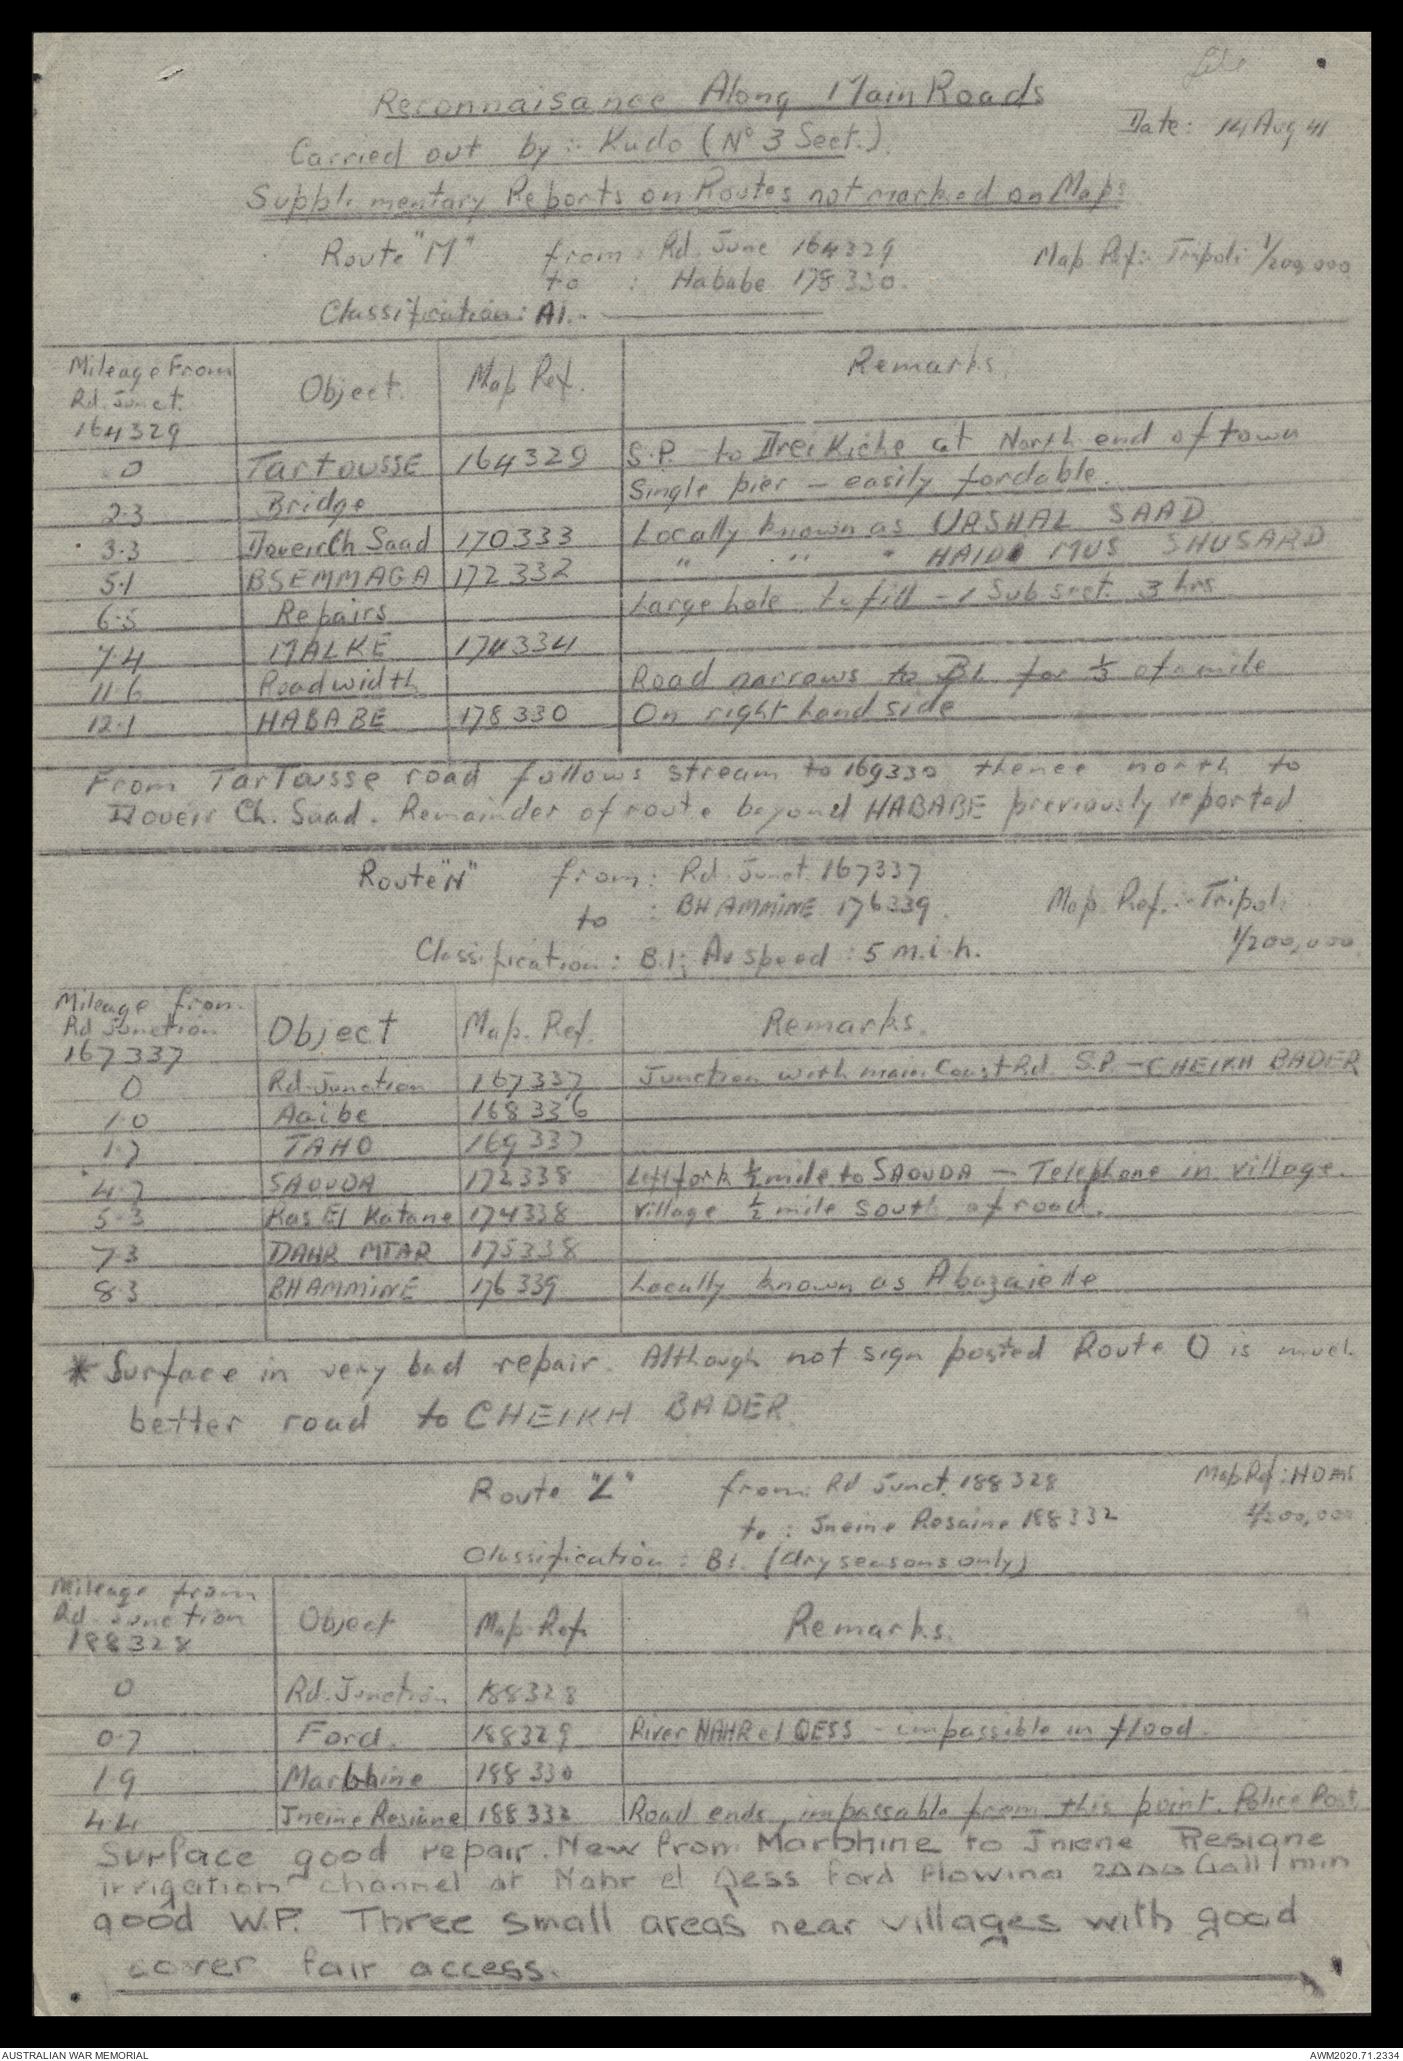 Reconnaisance Along Main Roads
Date: 14 Aug 41
Carried out by :- Kudo (No 3 Sect.).
Supplimentary Reports on Routes not marked on Maps
Route "M" from: Rd. Junc 164329 Map Ref:- Tripoli 1/200,000
to : Hababe 178330.
Classification: A1.
Mileage From Rd. Junct. 164329 Object. Map Ref. Remarks.
0 Tartousse 164329 S.P. to Drei Kiche at North end of town
2.3 Bridge Single pier - easily fordable.
3.3 Doveir Ch Saad 170333 Locally known as URSHAL SAAD
5.1 BSEMMAGA 172332 " " " HAID MUS SHUSARD
6.5 Repairs Large hole to fill - 1 Sub sect. 3 hrs
7.4 MALKE 174334
11.6 Road width Road narrows to B1 for 1/3 of a mile
12.1 HABABE 178330 On right hand side
From Tartousse road follows stream to 169330 thence north to
Doveir Ch. Saad. Remainder of route beyond HABABE previously reported
Route "N" from: Rd. Junct. 167337
to : BHAMMINE 176339. Map. Ref.:- Tripoli
1/200,000
Classification: B.1; Av speed : 5 m.i.h.
Mileage from Rd Junction 167337 Object Map. Ref. Remarks.
0 Rd. Junction 167337 Junction with main Coast Rd. S.P. - CHEIKH BADER
1.0 Aaibe 168336
1.7 TAHO 169337
4.7 SAOUDA 172338 Left fork 1/2 mile to SAOUDA - Telephone in village.
5.3 Kas El Katane 174338 Village 1/2 mile south of road.
7.3 DAHR MTAR 175338
8.3 BHAMMINE 176339 Locally known as Abuzaielle
* Surface in very bad repair. Although not sign posted Route O is much
better road to CHEIKH BADER.
Route "L" from: Rd Junct. 188328 Map Ref: HOMS
to : Jneine Rosaine 188332 1/200,000
Classification : B1. (dry seasons only)
Mileage from Rd. Junction 188328 Object Map. Ref. Remarks.
0 Rd. Junction 188328
0.7 Ford. 188329 River NAHR el QESS - impassible in flood.
1.9 Marbhine 188330
4.4 Jneine Resiane 188332 Road ends, impassable from this point. Police Post.
Surface good repair. New from Marbhine to Jniene Resiane
irrigation channel at Nahr el Qess ford flowing 2000 Gall/min
good W.P. Three small areas near villages with good
cover fair access.
AUSTRALIAN WAR MEMORIAL
AWM2020.71.2334